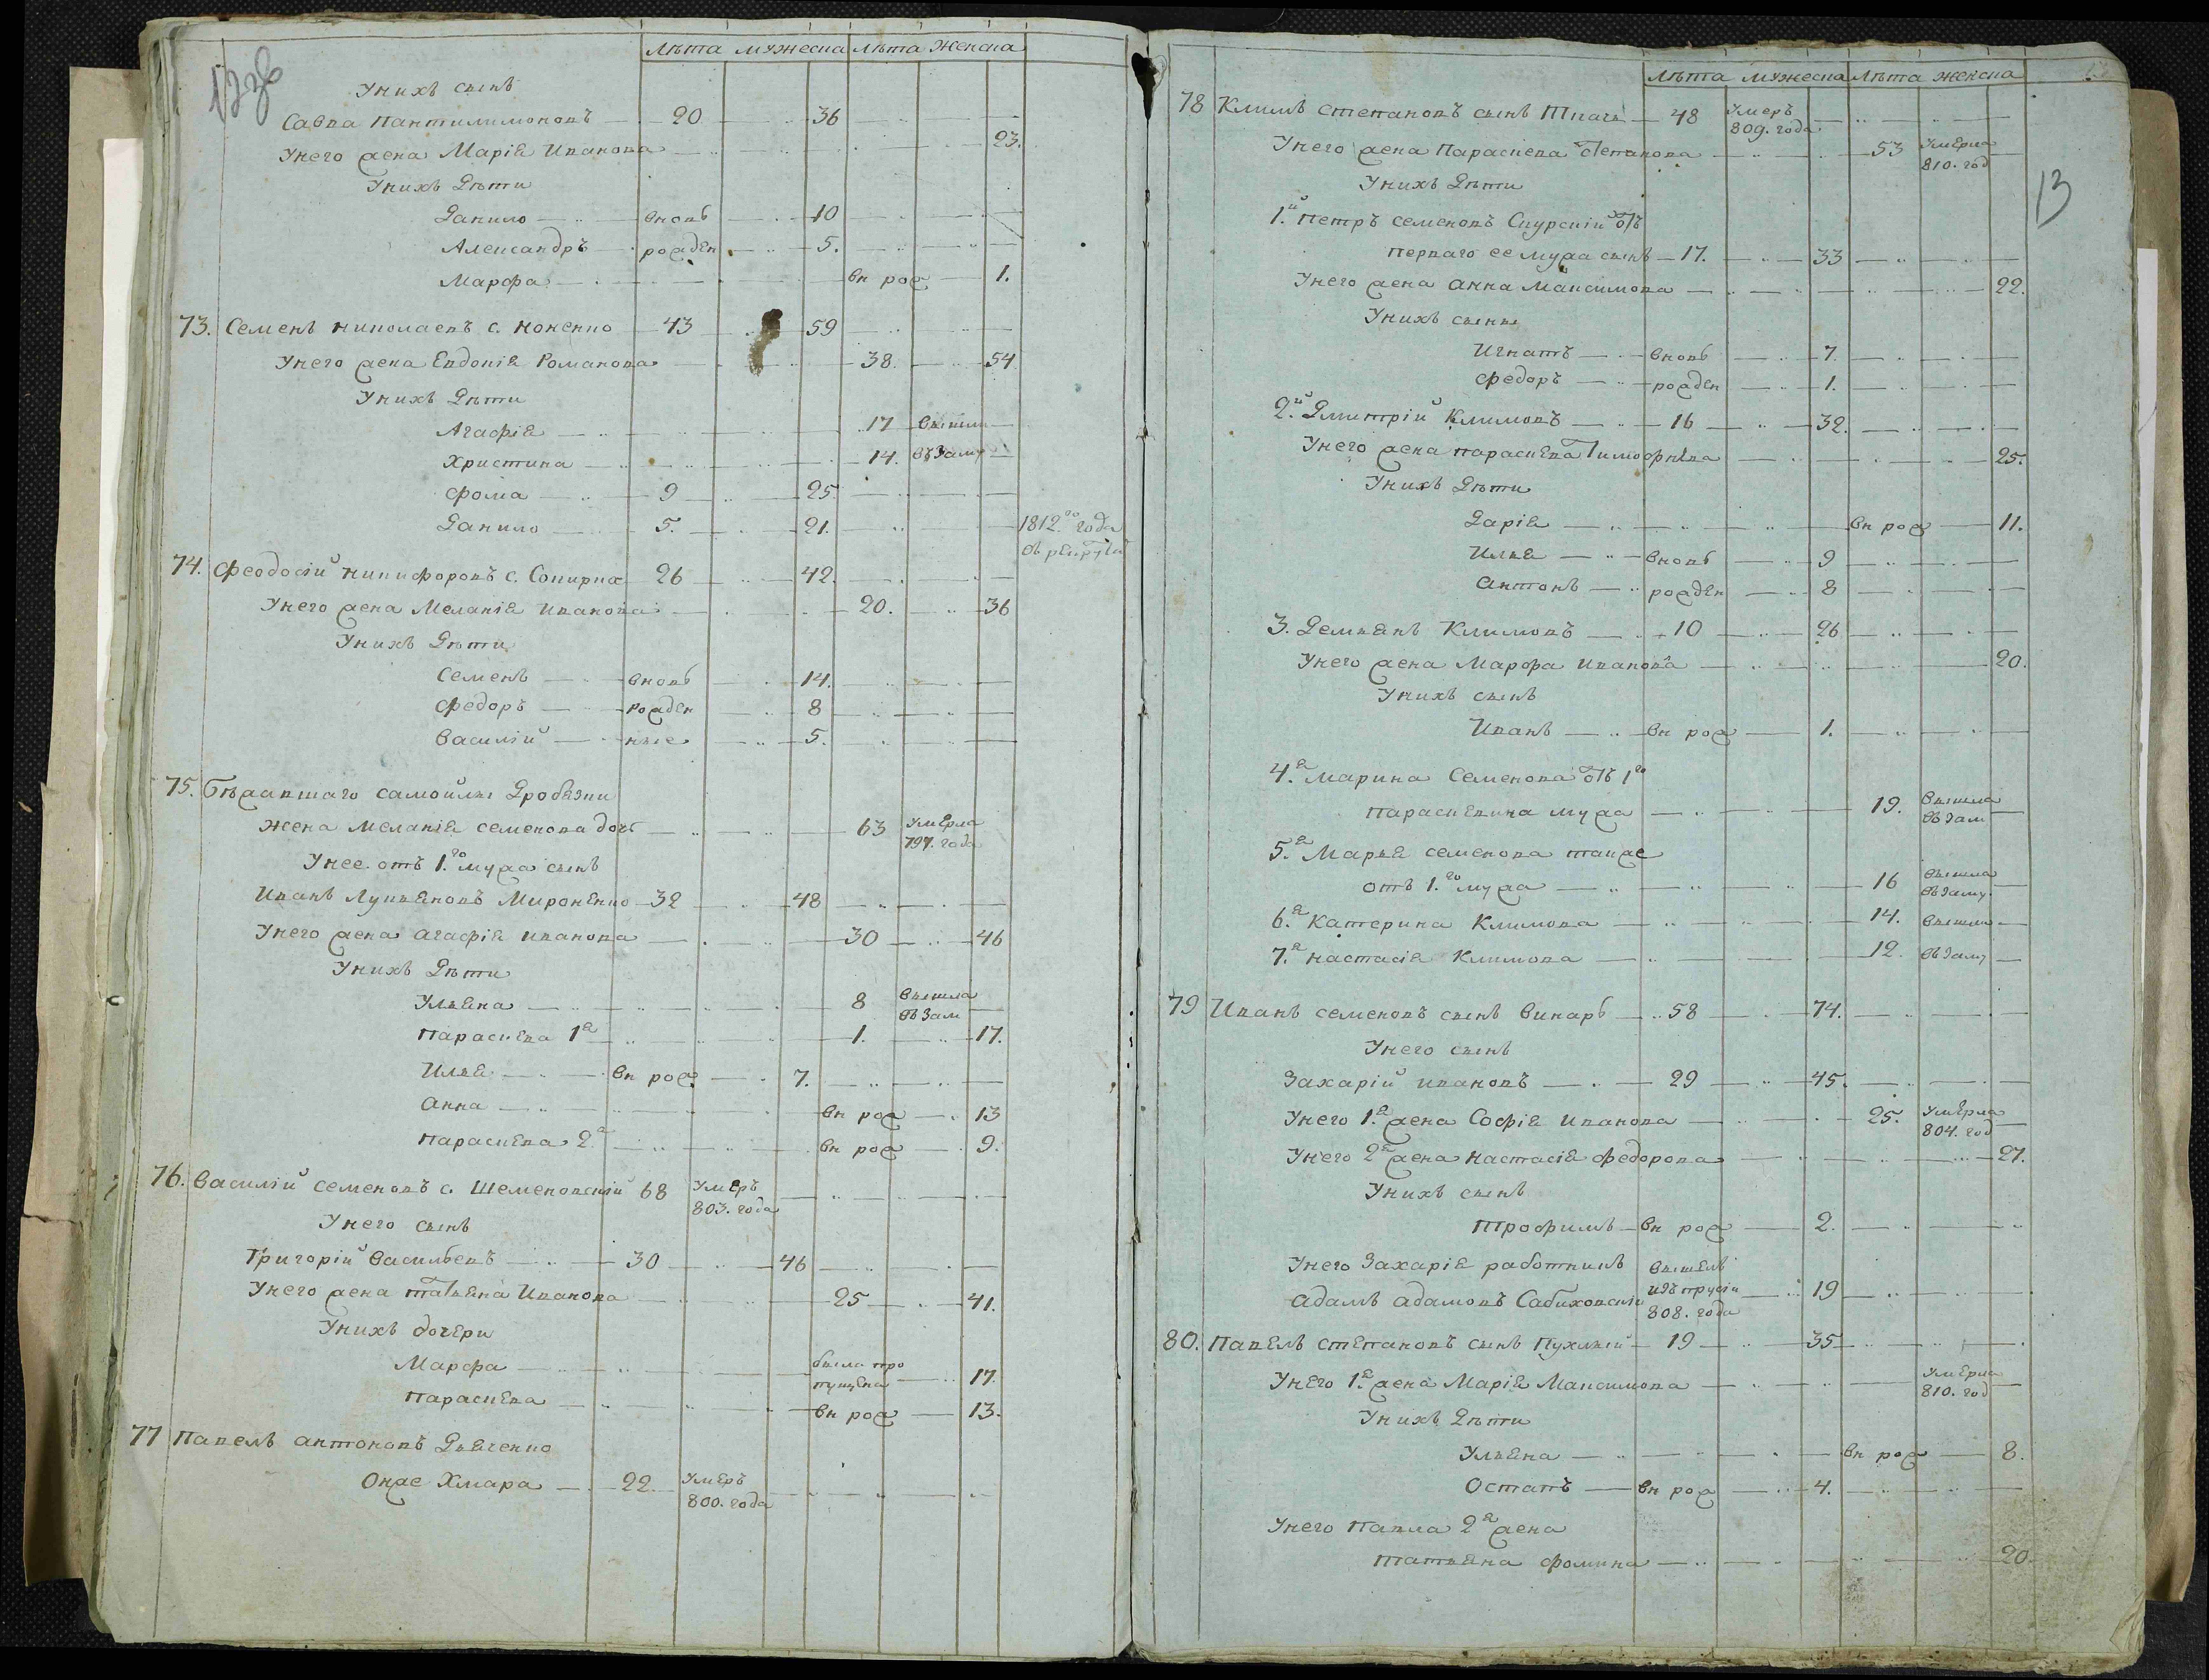 Лѣта мужеска Лѣта женска
У них сынъ
Савка Пантилимоновъ 20 36
У него жена Маріѧ Иванова 23.
У нихъ Дѣти
Данило вновь 10
Александръ рожден 5.
Марфа вн рож 1.
73. Семенъ Николаевъ с. Коненко 43 59
У него жена Евдокіѧ Романова 38. 54
У нихъ Дѣти
Агафіѧ 17 вышли
Христина 14. въ заму
Фома 9 25
Данило 5. 21. 1812го года
74. Феодосій Никифоровъ с. 26 42.
У него жена Меланіѧ Иванова 20. 36
У нихъ Дѣти
Семенъ вновь 14.
Федоръ рожден 8
Василій ные 5.
75. Бѣжавшаго Самойлы Дробѧзки
жена Меланіѧ Семенова дочь 63 умерла 797. года
У нее отъ 1.го мужа сынъ
Иванъ Лукьѧновъ Мироненко 32 48
У него жена Агафіѧ Иванова 30 46
У нихъ Дѣти
Ульѧна 8 вышла въ зам
Параскева 1ѧ 1. 17.
Ильѧ вн рож 7.
Анна вн рож 13
Параскева 2.ѧ вн рож 9.
76. Василій Семеновъ с. Шеменовскій 68 Умеръ 803. года
У него сынъ
Григорій Васильевъ 30 46
У него жена Татьѧна Иванова 25 41.
У нихъ дочери
Марфа была про пущена 17.
Параскева вн рож 13.
77 Павелъ Антоновъ Дьѧченко
Онже Хмара 22. умеръ 800. года
13
Лѣта мужеска Лѣта женска
78 Климъ Степановъ сынъ Ткачь 48 Умеръ 809. года
У него жена Параскева Степанова 53 умерла 810. год
У нихъ Дѣти
1.й Петръ Семеновъ Скурскій отъ
перваго ее мужа сынъ 17. 33
У него жена Анна Максимова 22.
У нихъ сыны
Игнатъ вновь 7.
Федоръ рожден 1.
2.й Дмитрій Климовъ 16 32.
У него жена Параскева Тимофѣева 25.
У нихъ Дѣти
Даріѧ вн рож 11.
Ильѧ вновь 9
Антонъ рожден 8
3. Демьѧнъ Климовъ 10 26
У него жена Марфа Иванова 20.
У нихъ сынъ
Иванъ вн рож 1.
4.ѧ Марина Семенова отъ 1го
Параскевина мужа 19. вышла въ зам
5.ѧ Марьѧ Семенова также
отъ 1.го мужа 16 вышла въ заму.
6.ѧ Катерина Климова 14. вышли
7.ѧ Настасіѧ Климова 12. въ заму
79 Иванъ Семеновъ сынъ Винарь 58 74.
У него сынъ
Захарій Ивановъ 29 45.
У него 1.ѧ жена Софіѧ Иванова 25. умерла 804. год
У него 2ѧ жена Настасіѧ Федорова 27.
У нихъ сынъ
Трофимъ вн рож 2.
У него Захаріѧ работникъ вышелъ
Адамъ Адамовъ Сабиховскій изъ прусіи 808. года 19
80. Павелъ Степановъ сынъ Пухлый 19 35
У него 1.ѧ жена Маріѧ Максимова умерла 810. год
У нихъ Дѣти
Ульѧна вн рож 8.
Остапъ вн рож 4.
У него Павла 2ѧ жена
Татьѧна Фомина 20.